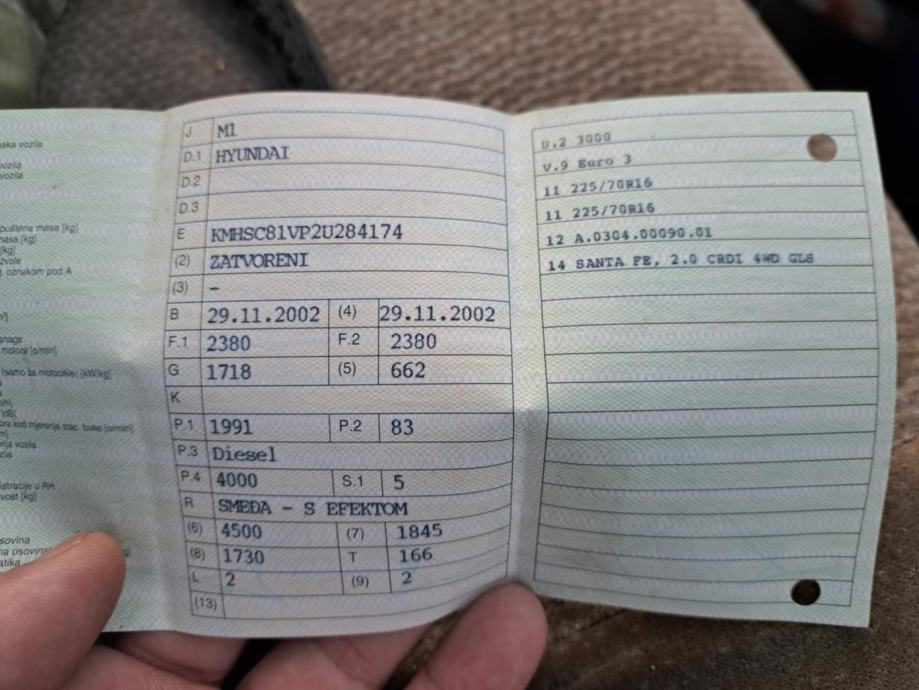 aka vozila
vozila
vozila
puštena masa [kg]
masa [kg]
[kg]
zvole
oznakom pod A
snage
motora [o/min]
(samo za motocikle) [kW/kg]
[dB]
kod mjerenja stac. buke [o/min]
vozila
zila
istracije u RH
vost [kg]
sovina
na osovin
atika
J M1
D.1 HYUNDAI
D.2
D.3
E KMHSC81VP2U284174
(2) ZATVORENI
(3) –
B 29.11.2002 (4) 29.11.2002
F.1 2380 F.2 2380
G 1718 (5) 662
K
P.1 1991 P.2 83
P.3 Diesel
P.4 4000 S.1 5
R SMEĐA - S EFEKTOM
(6) 4500 (7) 1845
(8) 1730 T 166
L 2 (9) 2
(13)
U.2 3000
V.9 Euro 3
11 225/70R16
11 225/70R16
12 A.0304.00090.01
14 SANTA FE, 2.0 CRDI 4WD GLS